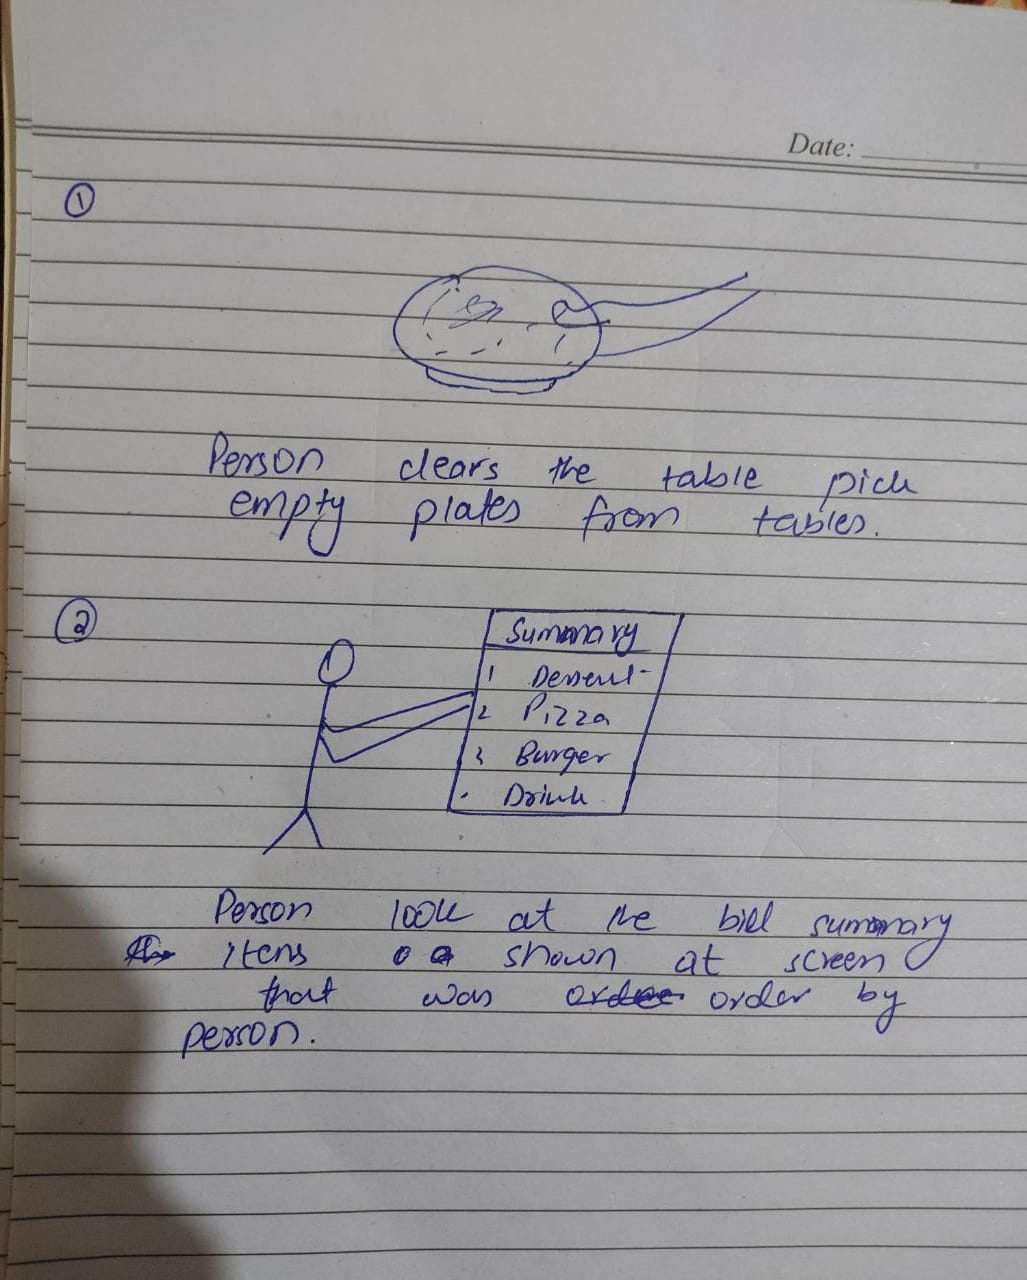 Date:
1
Person clears the table pick
empty plates from tables.
2
Summary
1 Dessert
2 Pizza
3 Burger
. Drink
Person look at the bill summary
items shown at screen
that was order by
person.